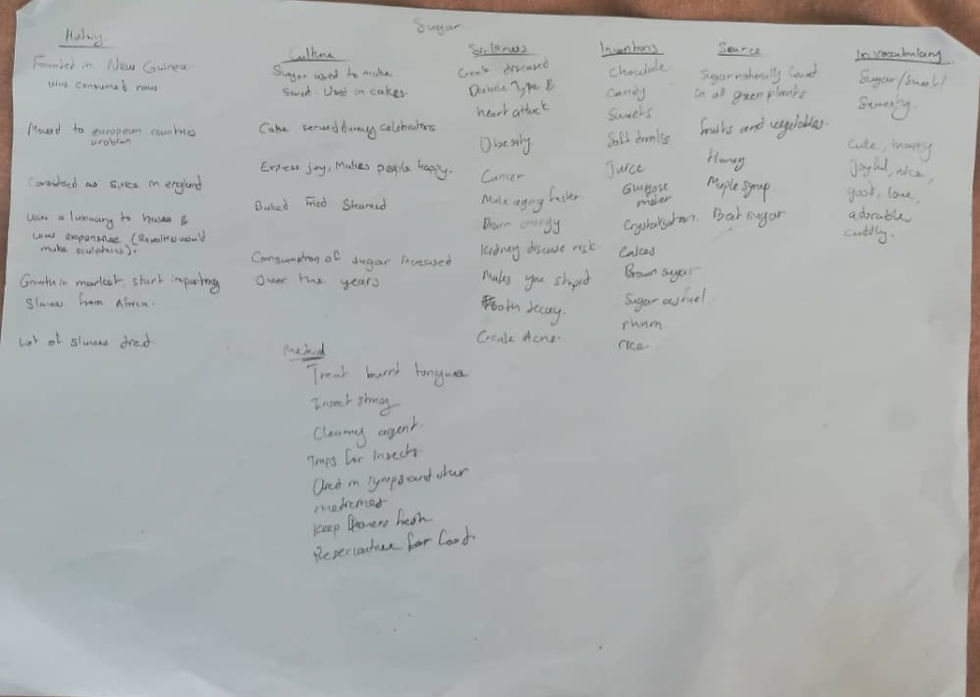 Sugar
History
Founded in New Guinea
was consumed raw
Moved to european countries
arabian
Considered as spice in england
was a luxuary to have &
was expensive (Royalties would
make sculptures).
Growth in market, start importing
Slaves from Africa.
Lot of slaves died
Culture
Sugar used to make
sweet. Used in cakes.
Cake served during celebrations
Express joy, Makes people happy.
Baked Fried Steamed
Consumption of sugar increased
Over the years
Method
Treat burnt tongue
Insect sting
Cleaning agent.
Traps for insects.
Used in syrups and other
medicines
Keep flowers fresh
for food
Create diseased
Diabetic Type
heart attack
Obesity
Cancer
Make aging faster
Drain energy
Kidney disease risk
Makes you stupid
Tooth decay.
Create Acne.
Inventions
Chocolate
Candy
Sweets
Soft drinks
Juice
Crystalisation.
Cakes
Brown sugar
Sugar as fuel.
rice.
Source
Sugar naturally found
in all green plants
fruits and vegetables.
Honey
Maple syrup
Beet sugar
In vocabulary
Sugar/sweet/
Sweety
Cute,
Joyful, nice,
good, love,
adorable
cuddly.